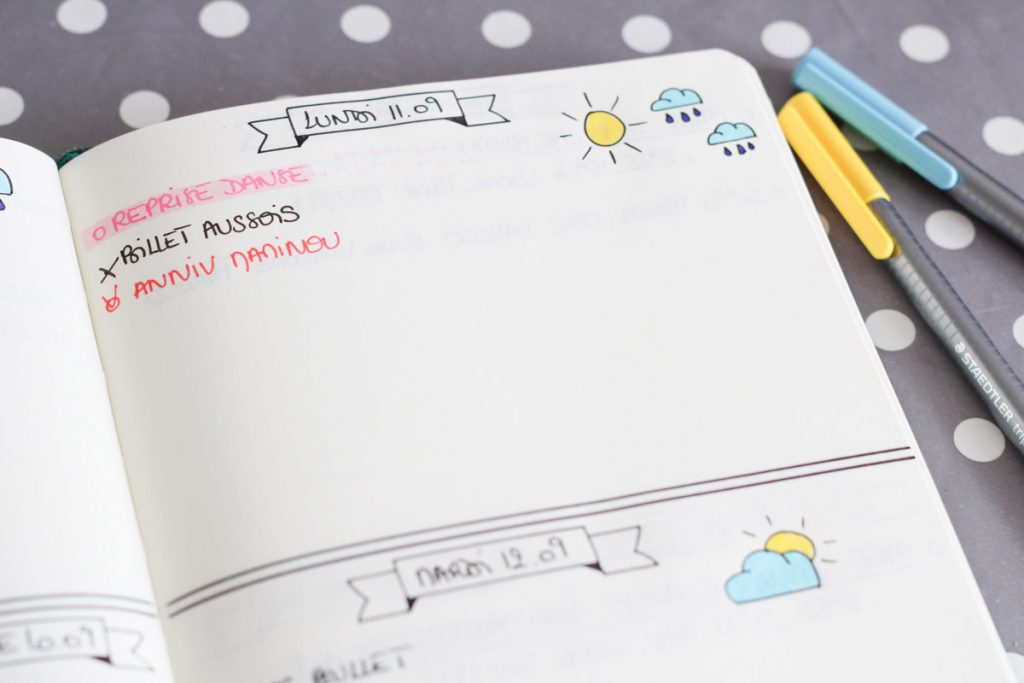 LUNDI 11.09
O REPRISE DANSE.
X BILLET AUSSOIS
ANNIV MANINOU
MARDI 12.09
BILLET
E 10.09
STAEDTLER tri